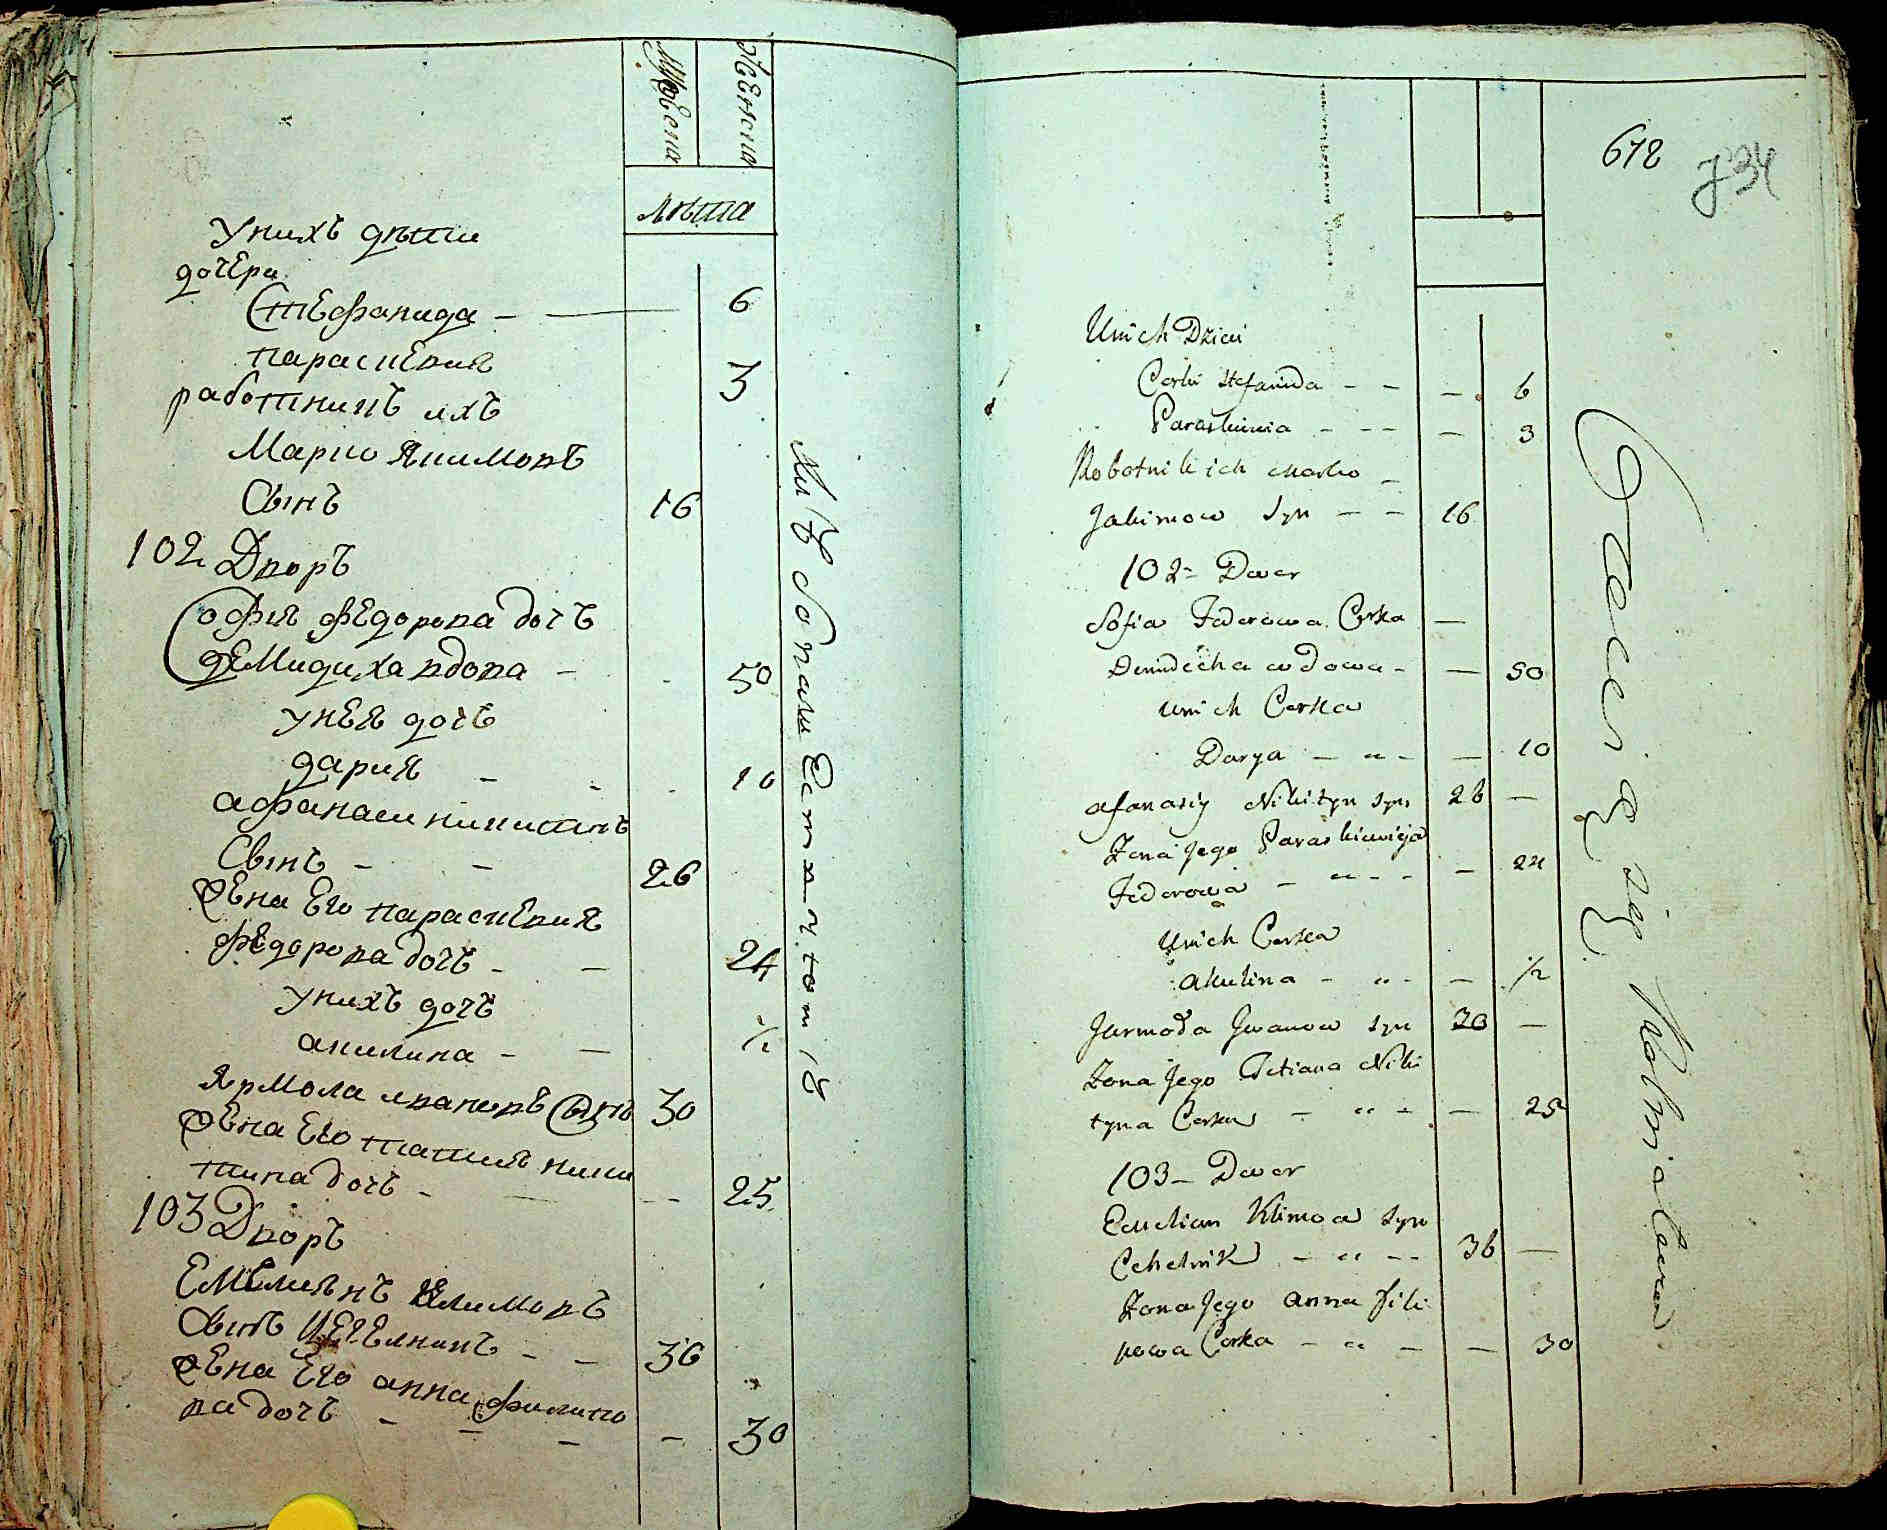 Мужеска Женска
лѣта
У нихъ дѣти
дочери
Стефанида — — 6
Параскевия 3
работникъ ихъ
Марко Якимовъ
Сынъ 16
102 Дворъ
София Федорова дочь
Демидиха вдова – 50
У нея дочь
Дария – 10
Афанаси Никитинъ
Сынъ – – 26
Жена Его Параскевия
Федорова дочь – – 24
У нихъ дочь
Акилина – – ½
Ярмола Ивановъ Сынъ 30
Жена Его Татияна Ники
тина дочь – – 25
103 Дворъ
Емелиянъ Климовъ
Сынъ Цегелникъ – – 36
Жена Его Анна Филипо
ва дочь – – – – 30
678
734
Unich Dzieci
Corki Stefanida – – — 6
Paraskiewia – – – — 3
Robotnik ich Marko –
Jakimow Syn – – 16
102– Dwor
Sofia Federowa Corka —
Demidicha wdowa – — 50
unich Corka
Darya – „ – — 10
Afanasiy Nikityn Syn 26 —
Zona Jego Paraskiewieja
Federowa – „ – – — 24
Unich Corka
Akulina – „ – — ½
Jarmoła Jwanow Syn 30 —
Zona Jego Tetiana Niki
tyna Corka – „ – — 25
103– Dwor
Emelian Klimow Syn
Cehelnik – „ – – 36 —
Zona Jego Anna Fili
powa Corka – „ – — 30